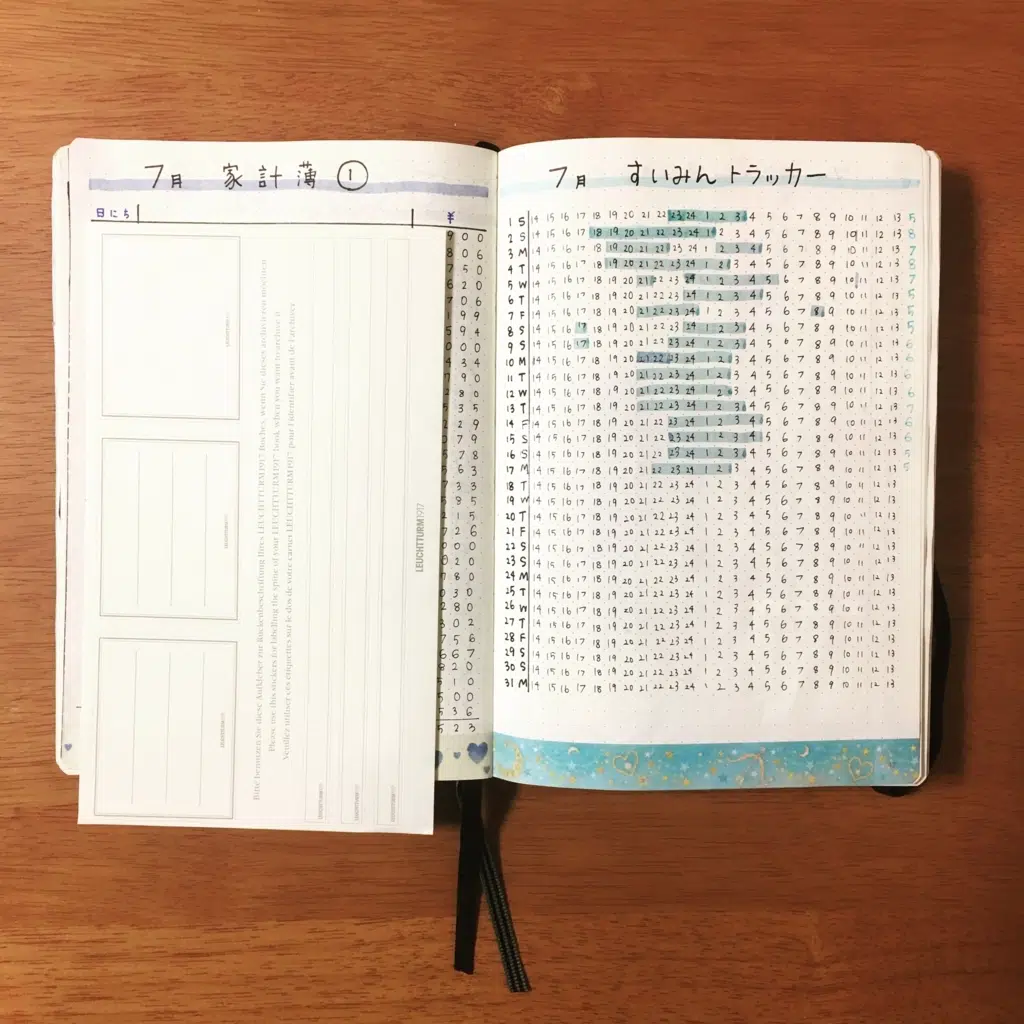 7月 家計薄 ①
日にち ¥
9 0 0
8 0 6
Bitte benutzen Sie diese Aufkleber zur Rückenbeschriftung Ihres LEUCHTTURM1917 Buches, wenn Sie dieses archivieren möchten
Please use this stickers for labelling the spine of your LEUCHTTURM1917 book, when you want to archive it
Veuillez utiliser ces étiquettes sur le dos de votre carnet LEUCHTTURM1917 pour l'identifier avant de l'archiver
LEUCHTTURM1917
LEUCHTTURM1917
LEUCHTTURM1917
LEUCHTTURM1917
LEUCHTTURM1917
LEUCHTTURM1917
LEUCHTTURM1917
7月 すいみんトラッカー
1 S 14 15 16 17 18 19 20 21 22 23 24 1 2 3 4 5 6 7 8 9 10 11 12 13 5
2 S 14 15 16 17 18 19 20 21 22 23 24 1 2 3 4 5 6 7 8 9 10 11 12 13 8
3 M 14 15 16 17 18 19 20 21 22 23 24 1 2 3 4 5 6 7 8 9 10 11 12 13 7
4 T 14 15 16 17 18 19 20 21 22 23 24 1 2 3 4 5 6 7 8 9 10 11 12 13 8
5 W 14 15 16 17 18 19 20 21 22 23 24 1 2 3 4 5 6 7 8 9 10 11 12 13 7
6 T 14 15 16 17 18 19 20 21 22 23 24 1 2 3 4 5 6 7 8 9 10 11 12 13 5
7 F 14 15 16 17 18 19 20 21 22 23 24 1 2 3 4 5 6 7 8 9 10 11 12 13 5
8 S 14 15 16 17 18 19 20 21 22 23 24 1 2 3 4 5 6 7 8 9 10 11 12 13 5
9 S 14 15 16 17 18 19 20 21 22 23 24 1 2 3 4 5 6 7 8 9 10 11 12 13 6
10 M 14 15 16 17 18 19 20 21 22 23 24 1 2 3 4 5 6 7 8 9 10 11 12 13 6
11 T 14 15 16 17 18 19 20 21 22 23 24 1 2 3 4 5 6 7 8 9 10 11 12 13 6
12 W 14 15 16 17 18 19 20 21 22 23 24 1 2 3 4 5 6 7 8 9 10 11 12 13 6
13 T 14 15 16 17 18 19 20 21 22 23 24 1 2 3 4 5 6 7 8 9 10 11 12 13 7
14 F 14 15 16 17 18 19 20 21 22 23 24 1 2 3 4 5 6 7 8 9 10 11 12 13 6
15 S 14 15 16 17 18 19 20 21 22 23 24 1 2 3 4 5 6 7 8 9 10 11 12 13 6
16 S 14 15 16 17 18 19 20 21 22 23 24 1 2 3 4 5 6 7 8 9 10 11 12 13 5
17 M 14 15 16 17 18 19 20 21 22 23 24 1 2 3 4 5 6 7 8 9 10 11 12 13 5
18 T 14 15 16 17 18 19 20 21 22 23 24 1 2 3 4 5 6 7 8 9 10 11 12 13
19 W 14 15 16 17 18 19 20 21 22 23 24 1 2 3 4 5 6 7 8 9 10 11 12 13
20 T 14 15 16 17 18 19 20 21 22 23 24 1 2 3 4 5 6 7 8 9 10 11 12 13
21 F 14 15 16 17 18 19 20 21 22 23 24 1 2 3 4 5 6 7 8 9 10 11 12 13
22 S 14 15 16 17 18 19 20 21 22 23 24 1 2 3 4 5 6 7 8 9 10 11 12 13
23 S 14 15 16 17 18 19 20 21 22 23 24 1 2 3 4 5 6 7 8 9 10 11 12 13
24 M 14 15 16 17 18 19 20 21 22 23 24 1 2 3 4 5 6 7 8 9 10 11 12 13
25 T 14 15 16 17 18 19 20 21 22 23 24 1 2 3 4 5 6 7 8 9 10 11 12 13
26 W 14 15 16 17 18 19 20 21 22 23 24 1 2 3 4 5 6 7 8 9 10 11 12 13
27 T 14 15 16 17 18 19 20 21 22 23 24 1 2 3 4 5 6 7 8 9 10 11 12 13
28 F 14 15 16 17 18 19 20 21 22 23 24 1 2 3 4 5 6 7 8 9 10 11 12 13
29 S 14 15 16 17 18 19 20 21 22 23 24 1 2 3 4 5 6 7 8 9 10 11 12 13
30 S 14 15 16 17 18 19 20 21 22 23 24 1 2 3 4 5 6 7 8 9 10 11 12 13
31 M 14 15 16 17 18 19 20 21 22 23 24 1 2 3 4 5 6 7 8 9 10 11 12 13